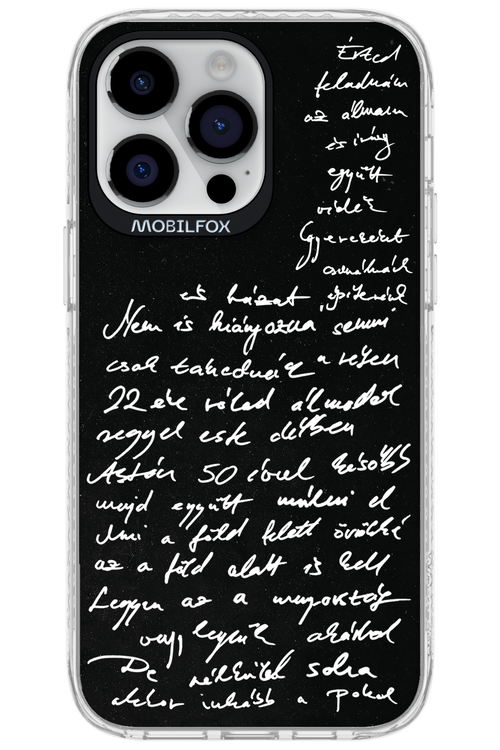 MOBILFOX
Érted
feladnám
az álmom
és így
együtt
Gyerekeket
csinálnánk
és házat építenénk
Nem is hiányozna semmi
csak takednák a réten
22 éve rólad álmodok
reggel este délben
Aztán 50 évvel később
majd együtt múlni el
Ami a föld felett örökké
az a föld alatt is kell
Legyen az a mennyország
vagy legyünk akárhol
De nélküled soha
akkor inkább a pokol